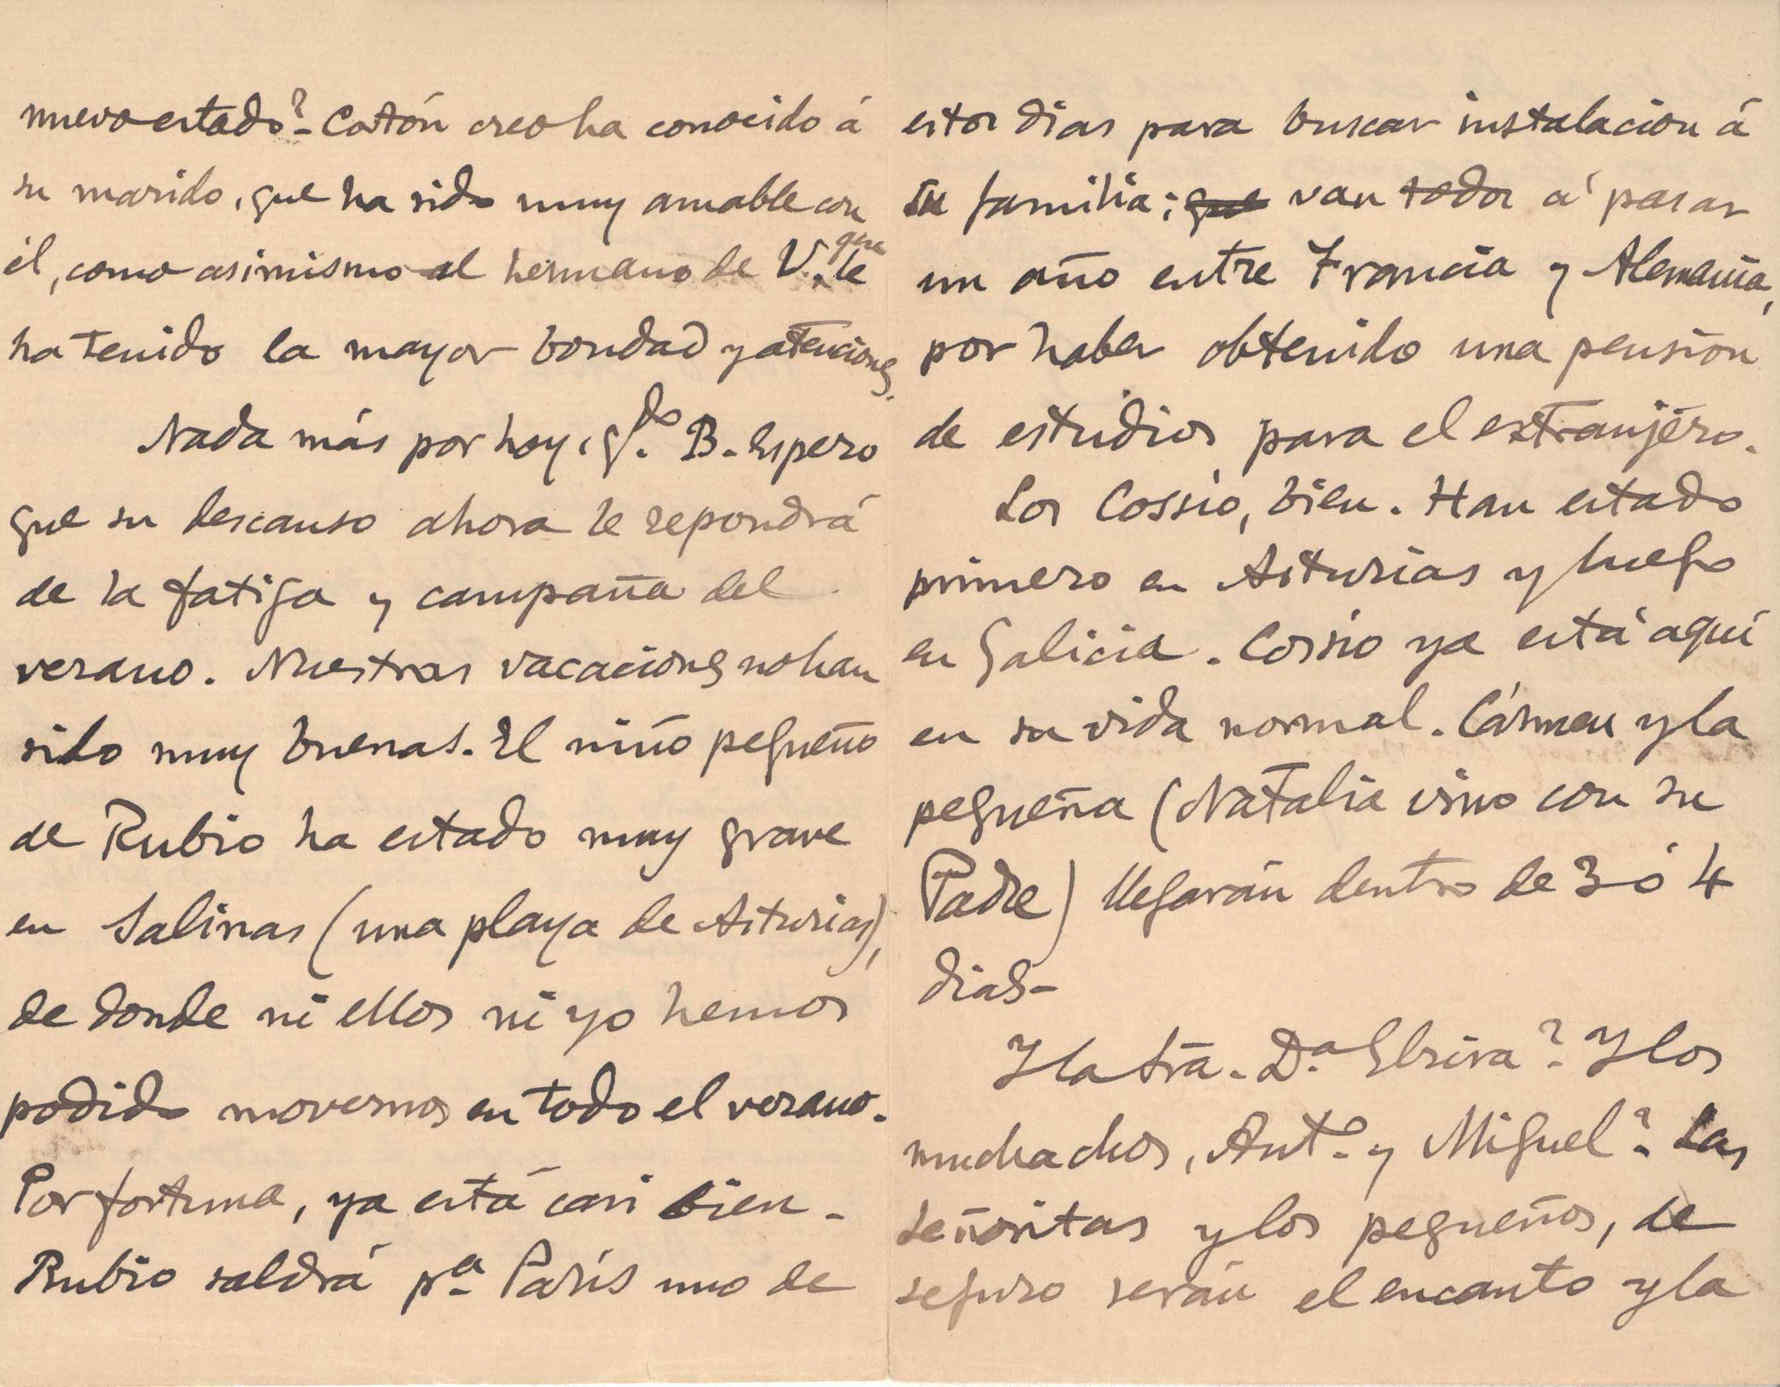 nuevo estado? - Catón creo ha conocido á
su marido, que ha sido muy amable con
él, como asimismo al hermano de V. que le
ha tenido la mayor bondad y atenciones.
Nada más por hoy, q.do B. Espero
que su descanso ahora le repondrá
de la fatiga y campaña del
verano. Nuestras vacaciones no han
sido muy buenas. El niño pequeño
de Rubio ha estado muy grave
en Salinas (una playa de Asturias),
de donde ni ellos ni yo hemos
podido movernos en todo el verano.
Por fortuna, ya está casi bien -
Rubio saldrá p.a París uno de
estos dias para buscar instalacion á
su familia; que van todos á pasar
un año entre Francia y Alemania,
por haber obtenido una pension
de estudios para el extranjero.
Los Cossio, bien. Han estado
primero en Asturias y luego
en Galicia. Cossio ya está aquí
en su vida normal. Cármen y la
pequeña (Natalia vino con su
Padre) llegarán dentro de 3 ó 4
dias -
Y la Sra. D.a Elvira? Y los
muchachos, Ant.o y Miguel? Las
señoritas y los pequeños, de
seguro serán el encanto y la